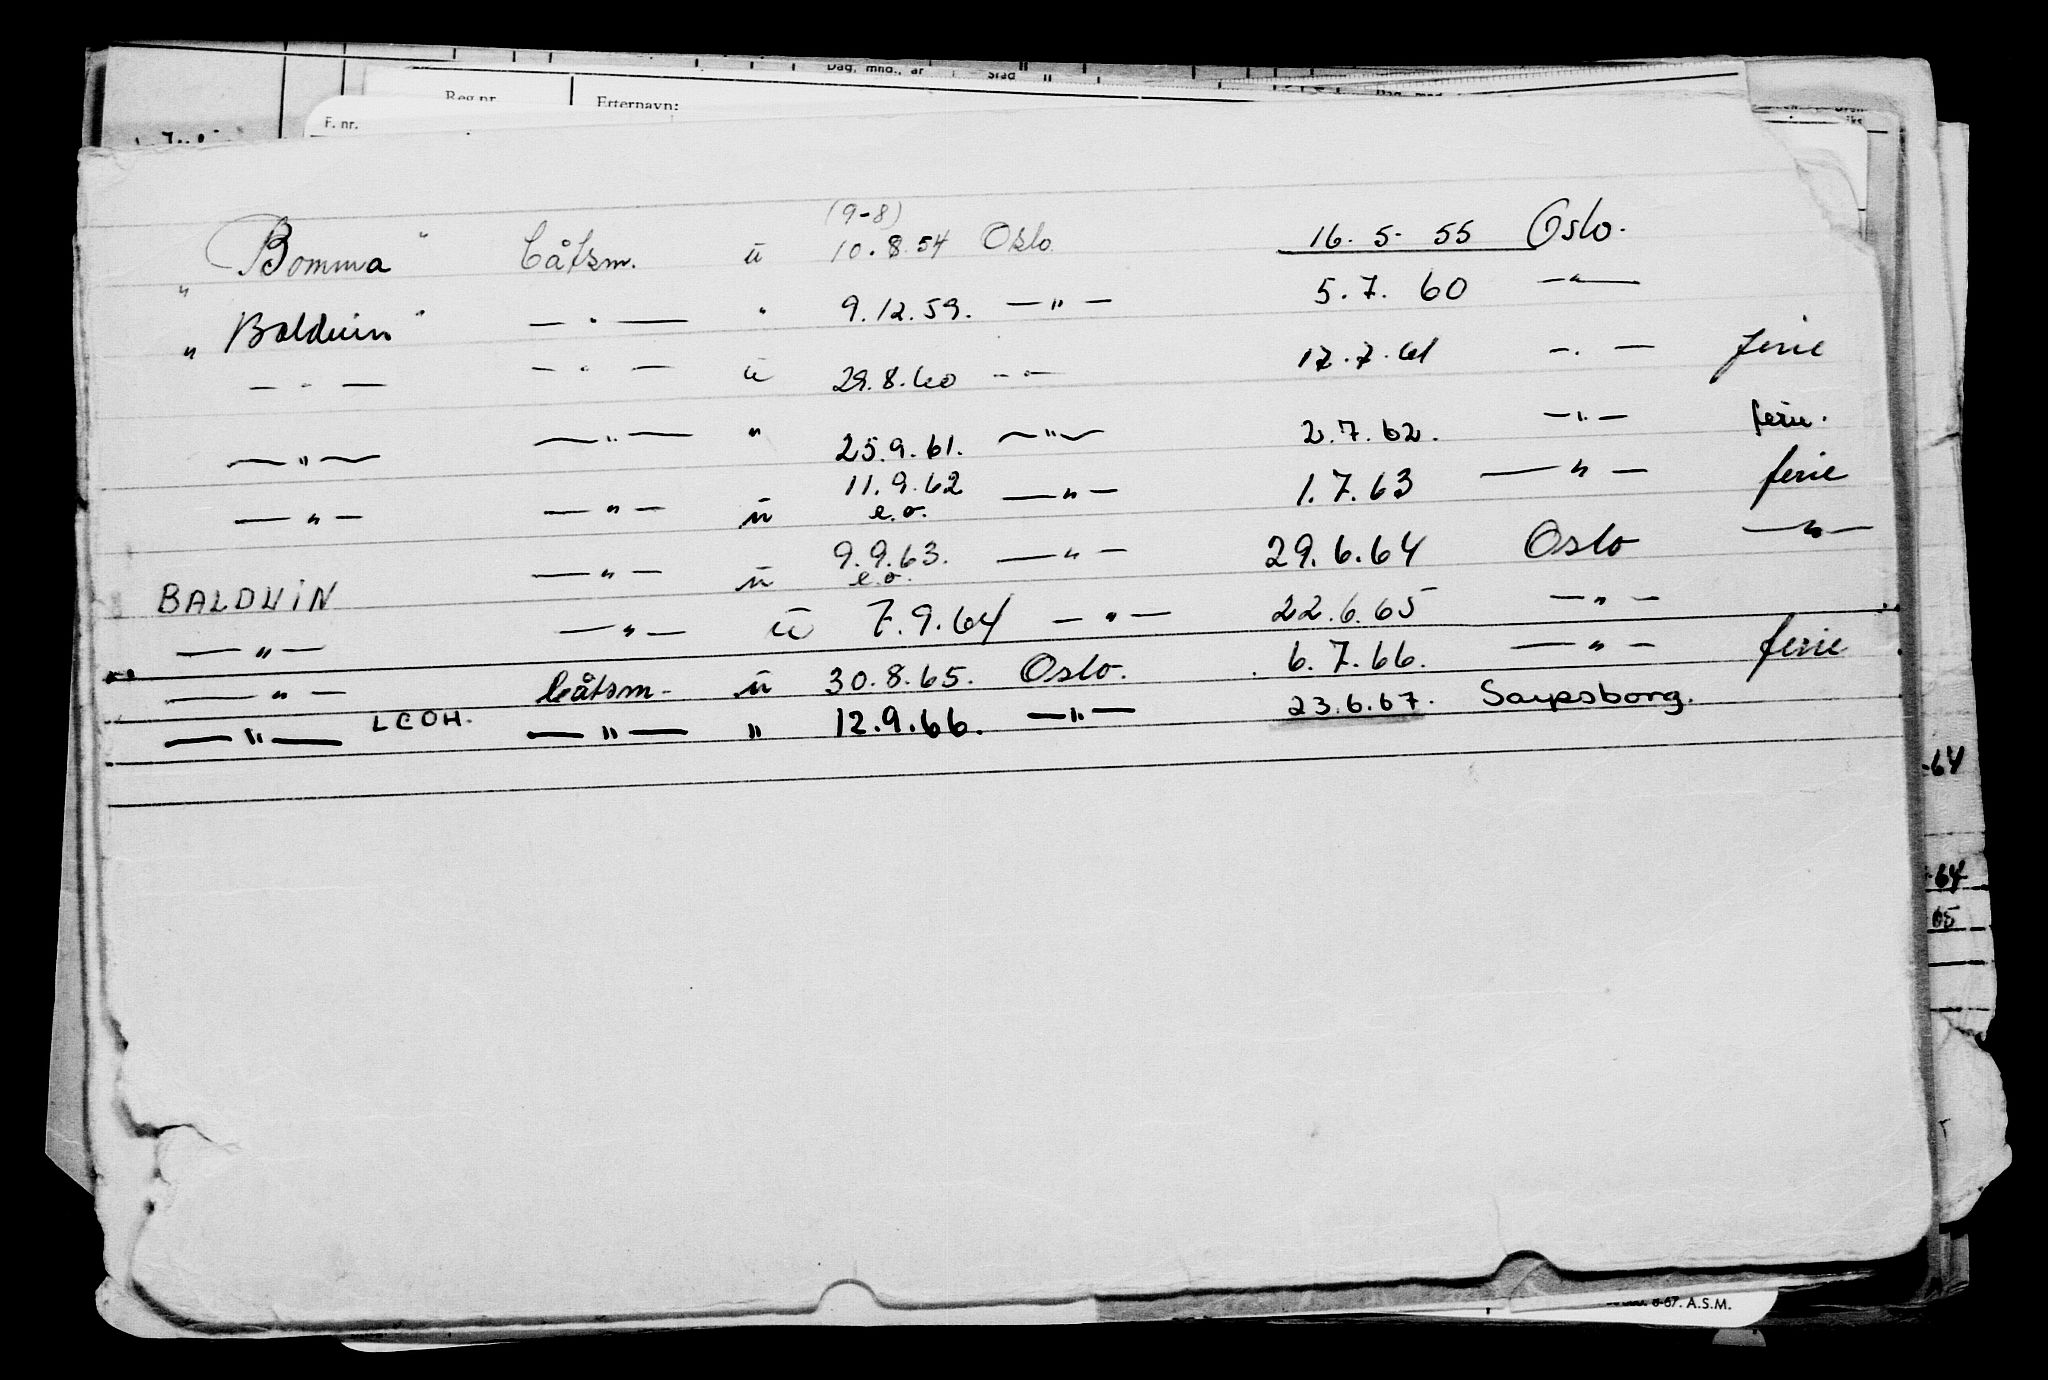 Dag, mnd., år Sted
Reg.nr. Etternavn:
F. nr.
(9-8)
" Bomma " båtsm. u 10.8.54 Oslo 16.5.55 Oslo.
" Balduin " — " — " 9.12.59. — " — 5.7.60 — " —
— " — — " — u 29.8.60 — " — 17.7.61 — " — ferie
— " — — " — " 25.9.61. — " — 2.7.62. — " — ferie.
— " — — " — u 11.9.62 — " — 1.7.63 — " — ferie
e.o.
BALDUIN — " — u 9.9.63. — " — 29.6.64 Oslo — " —
e.o.
— " — — " — u 7.9.64 — " — 22.6.65 — " —
— " — båtsm. u 30.8.65. Oslo. 6.7.66. — " — ferie
— " — LCOH. — " — " 12.9.66. — " — 23.6.67. Sarpsborg.
-64
-64
65
6-67. A.S.M.